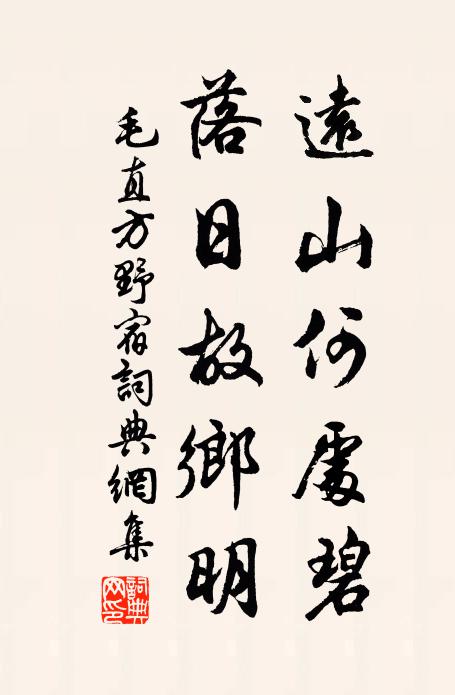 遠山何處碧
落日故鄉明
毛直方野宿詞典網集
詞典網印